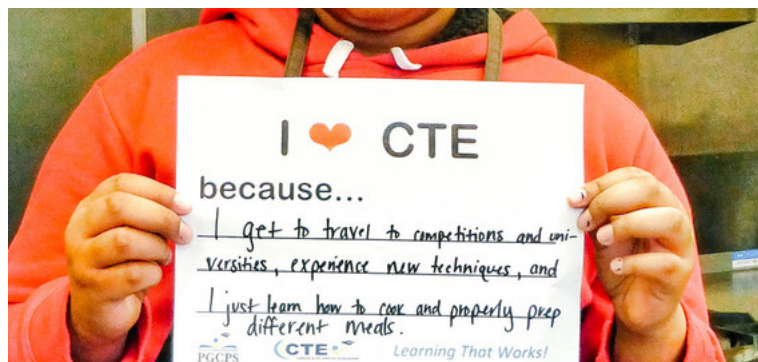 I ❤ CTE
because...
I get to travel to competitions and uni-
versities, experience new techniques, and
I just learn how to cook and properly prep
different meals.
PGCPS CTE Learning That Works!